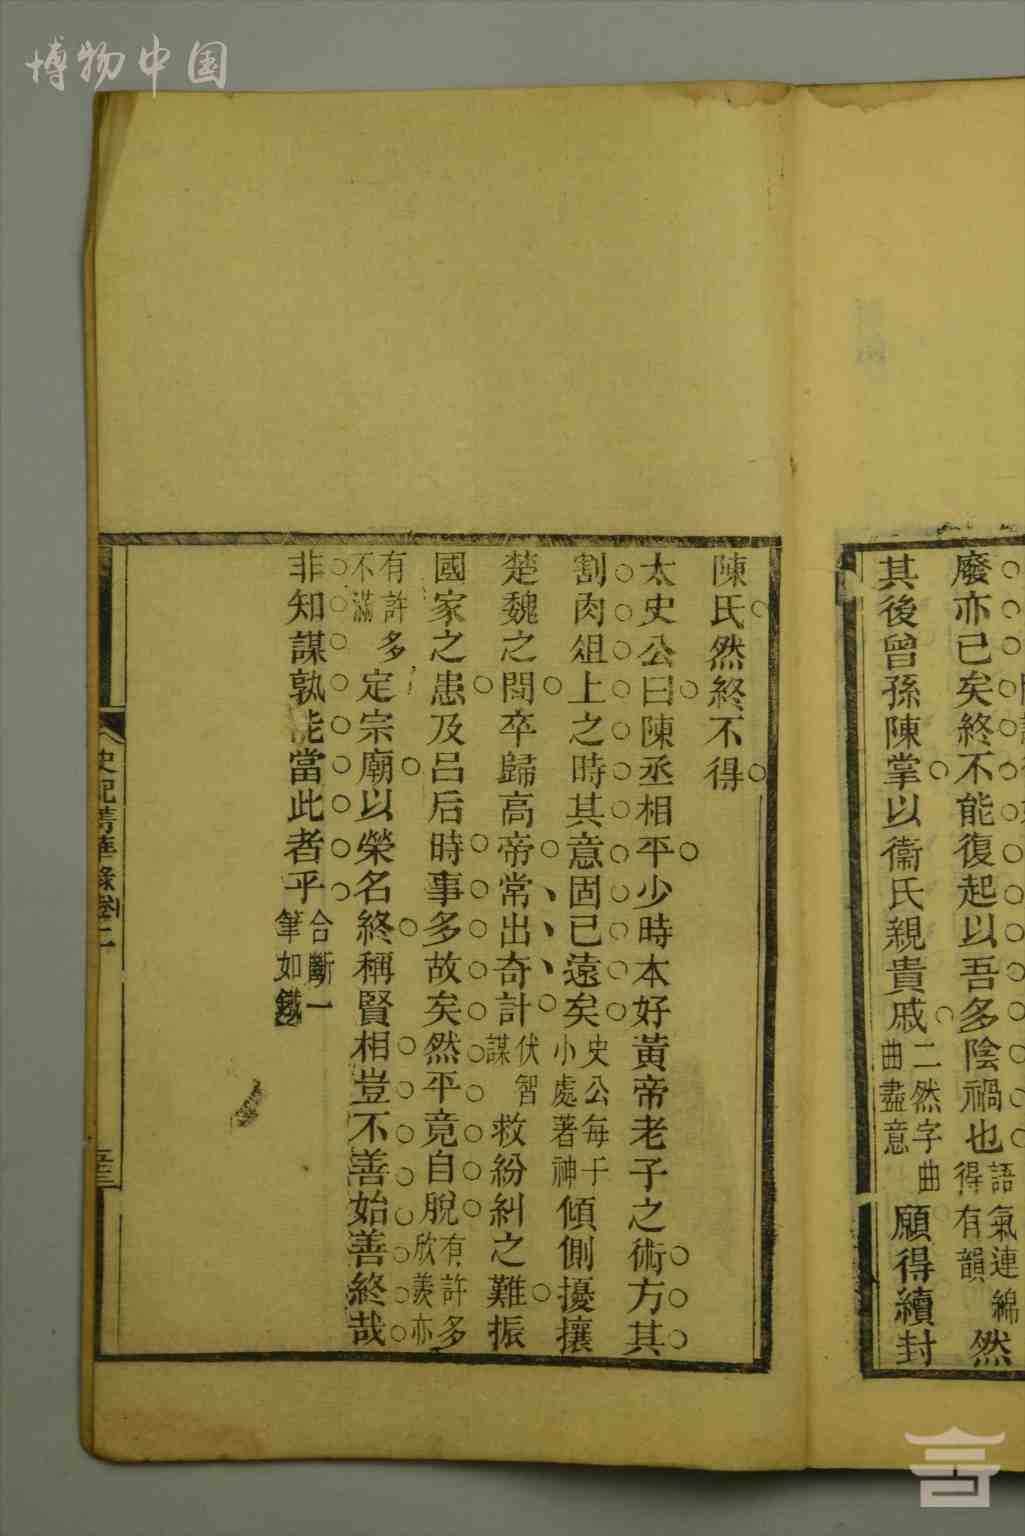 博物中国
廢亦已矣終不能復起以吾多陰禍也語氣連綿得有韻然
其後曾孫陳掌以衞氏親貴戚二然字曲曲盡意願得續封
陳氏然終不得
太史公曰陳丞相平少時本好黃帝老子之術方其
割肉俎上之時其意固已遠矣史公每于小處著神傾側擾攘
楚魏之間卒歸高帝常出奇計伏智謀救紛糾之難振
國家之患及呂后時事多故矣然平竟自脫有許多欣羨亦
有許多不滿定宗廟以榮名終稱賢相豈不善始善終哉
非知謀孰能當此者乎合斷一筆如鐵
史記菁華錄卷二